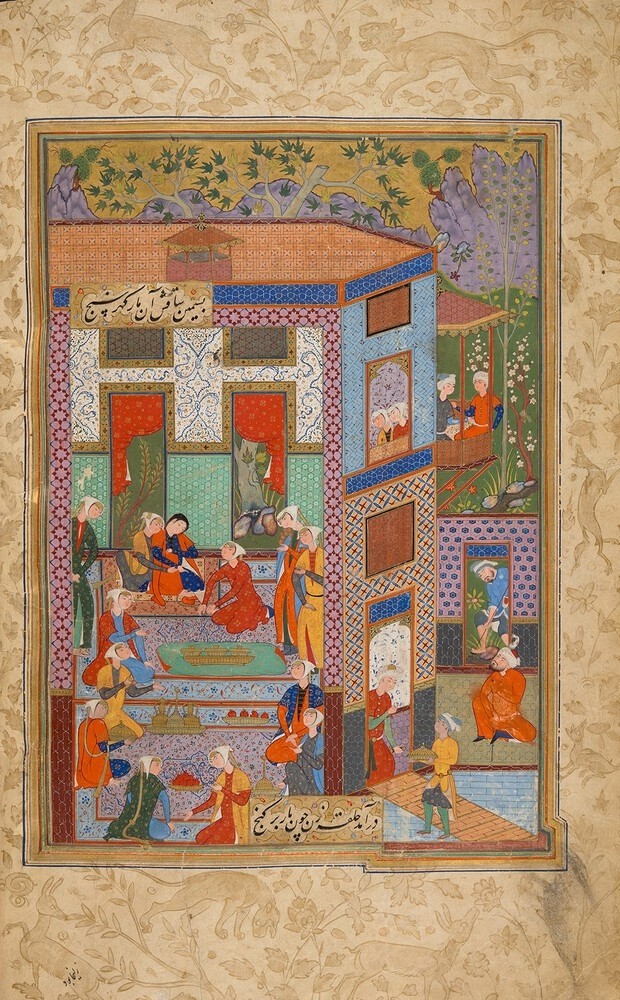 بسیمین ساقش آن مار گهر سنج
در آمد حلقه زن چون مار بر گنج